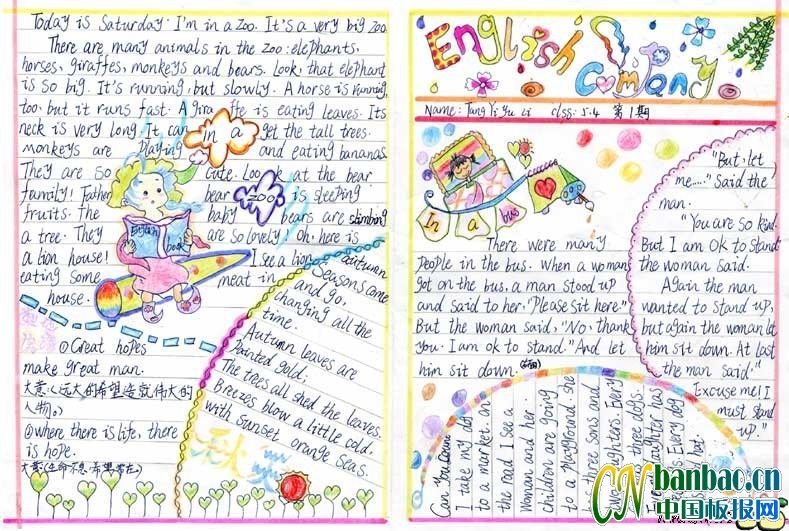 Today is Saturday. I'm in a zoo. It's a very big zoo.
There are many animals in the zoo: elephants,
horses, giraffes, monkeys and bears. Look, that elephant
is so big. It's running, but slowly. A horse is running,
too, but it runs fast. A giraffe is eating leaves. Its
neck is very long. It can get the tall trees.
monkeys are playing and eating bananas.
They are so cute. Look at the bear
family! Father bear is sleeping
fruits. The baby bears are slimbing
a tree. They are so lovely Oh, here is
a lion house! I see a lion
eating some meat in
house.
in a
zoo
English
book
①Great hopes
make great man.
大意:(远大的希望造就伟大的
人物。)
②where there is life, there
is hope.
autumn
Seasons come
and go.
changing all the
time.
Autumn leaves are
Painted gold;
The trees all shed the leaves.
Breezes blow a little cold,
with sunset orange seas.
English Company
Name: Tang Yi Yu Li clss: 5.4 第1期
In a bus
There were many
people in the bus. When a woman
got on the bus, a man stood up
and said to her, "Please sit here."
But the woman said, "No, thank
you. I am ok to stand." And let
him sit down.
"But, let
me....." Said the
man.
"You are so kind.
But I am ok to stand"
the woman said.
Again the man
wanted to stand up,
but again the woman let
him sit down. At last
the man said."
Excuse me! I
must stand
up."
I take my dog
to a market. on
the road I see a
woman and her
children are going
to a playground. she
has three sons and
CNbanbao.cn
中国板报网